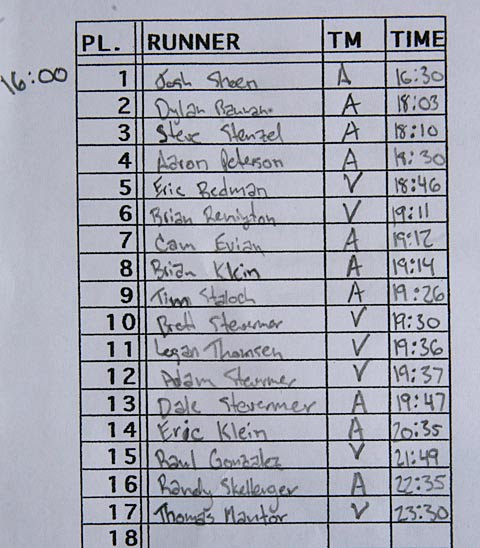 PL. RUNNER TM TIME
16:00
1 Josh Sheen A 16:30
2 Dylan A 18:03
3 Steve Stenzel A 18:10
4 Aaron Peterson A 18:30
5 Eric Redman V 18:46
6 Brian Remington V 19:11
7 Cam Evian A 19:12
8 Brian Klein A 19:14
9 Tim Staloch A 19:26
10 Brett Stevermer V 19:30
11 Logan Thomsen V 19:36
12 Adam Stevrmer V 19:37
13 Dale Stevermer A 19:47
14 Eric Klein A 20:35
15 Raul Gonzalez V 21:49
16 Randy Skellenger A 22:35
17 Thomas Mantor V 23:30
18